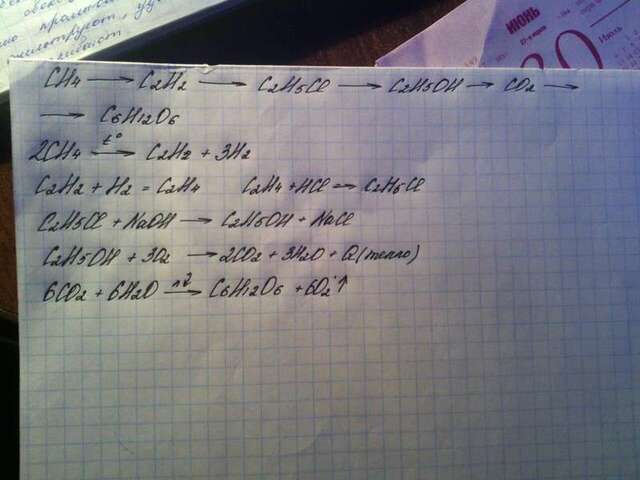 ИЮНЬ
Июль
30
CH4 → C2H2 → C2H5Cl → C2H5OH → CO2 →
→ C6H12O6
2CH4 t°→ C2H2 + 3H2
C2H2 + H2 = C2H4 C2H4 + HCl → C2H5Cl
C2H5Cl + NaOH → C2H5OH + NaCl
C2H5OH + 3O2 → 2CO2 + 3H2O + Q (тепло)
6CO2 + 6H2O → C6H12O6 + 6O2↑